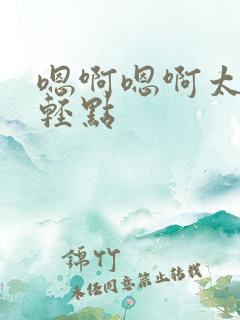 嗯啊嗯啊太
輕點
錦竹
未经同意禁止转载